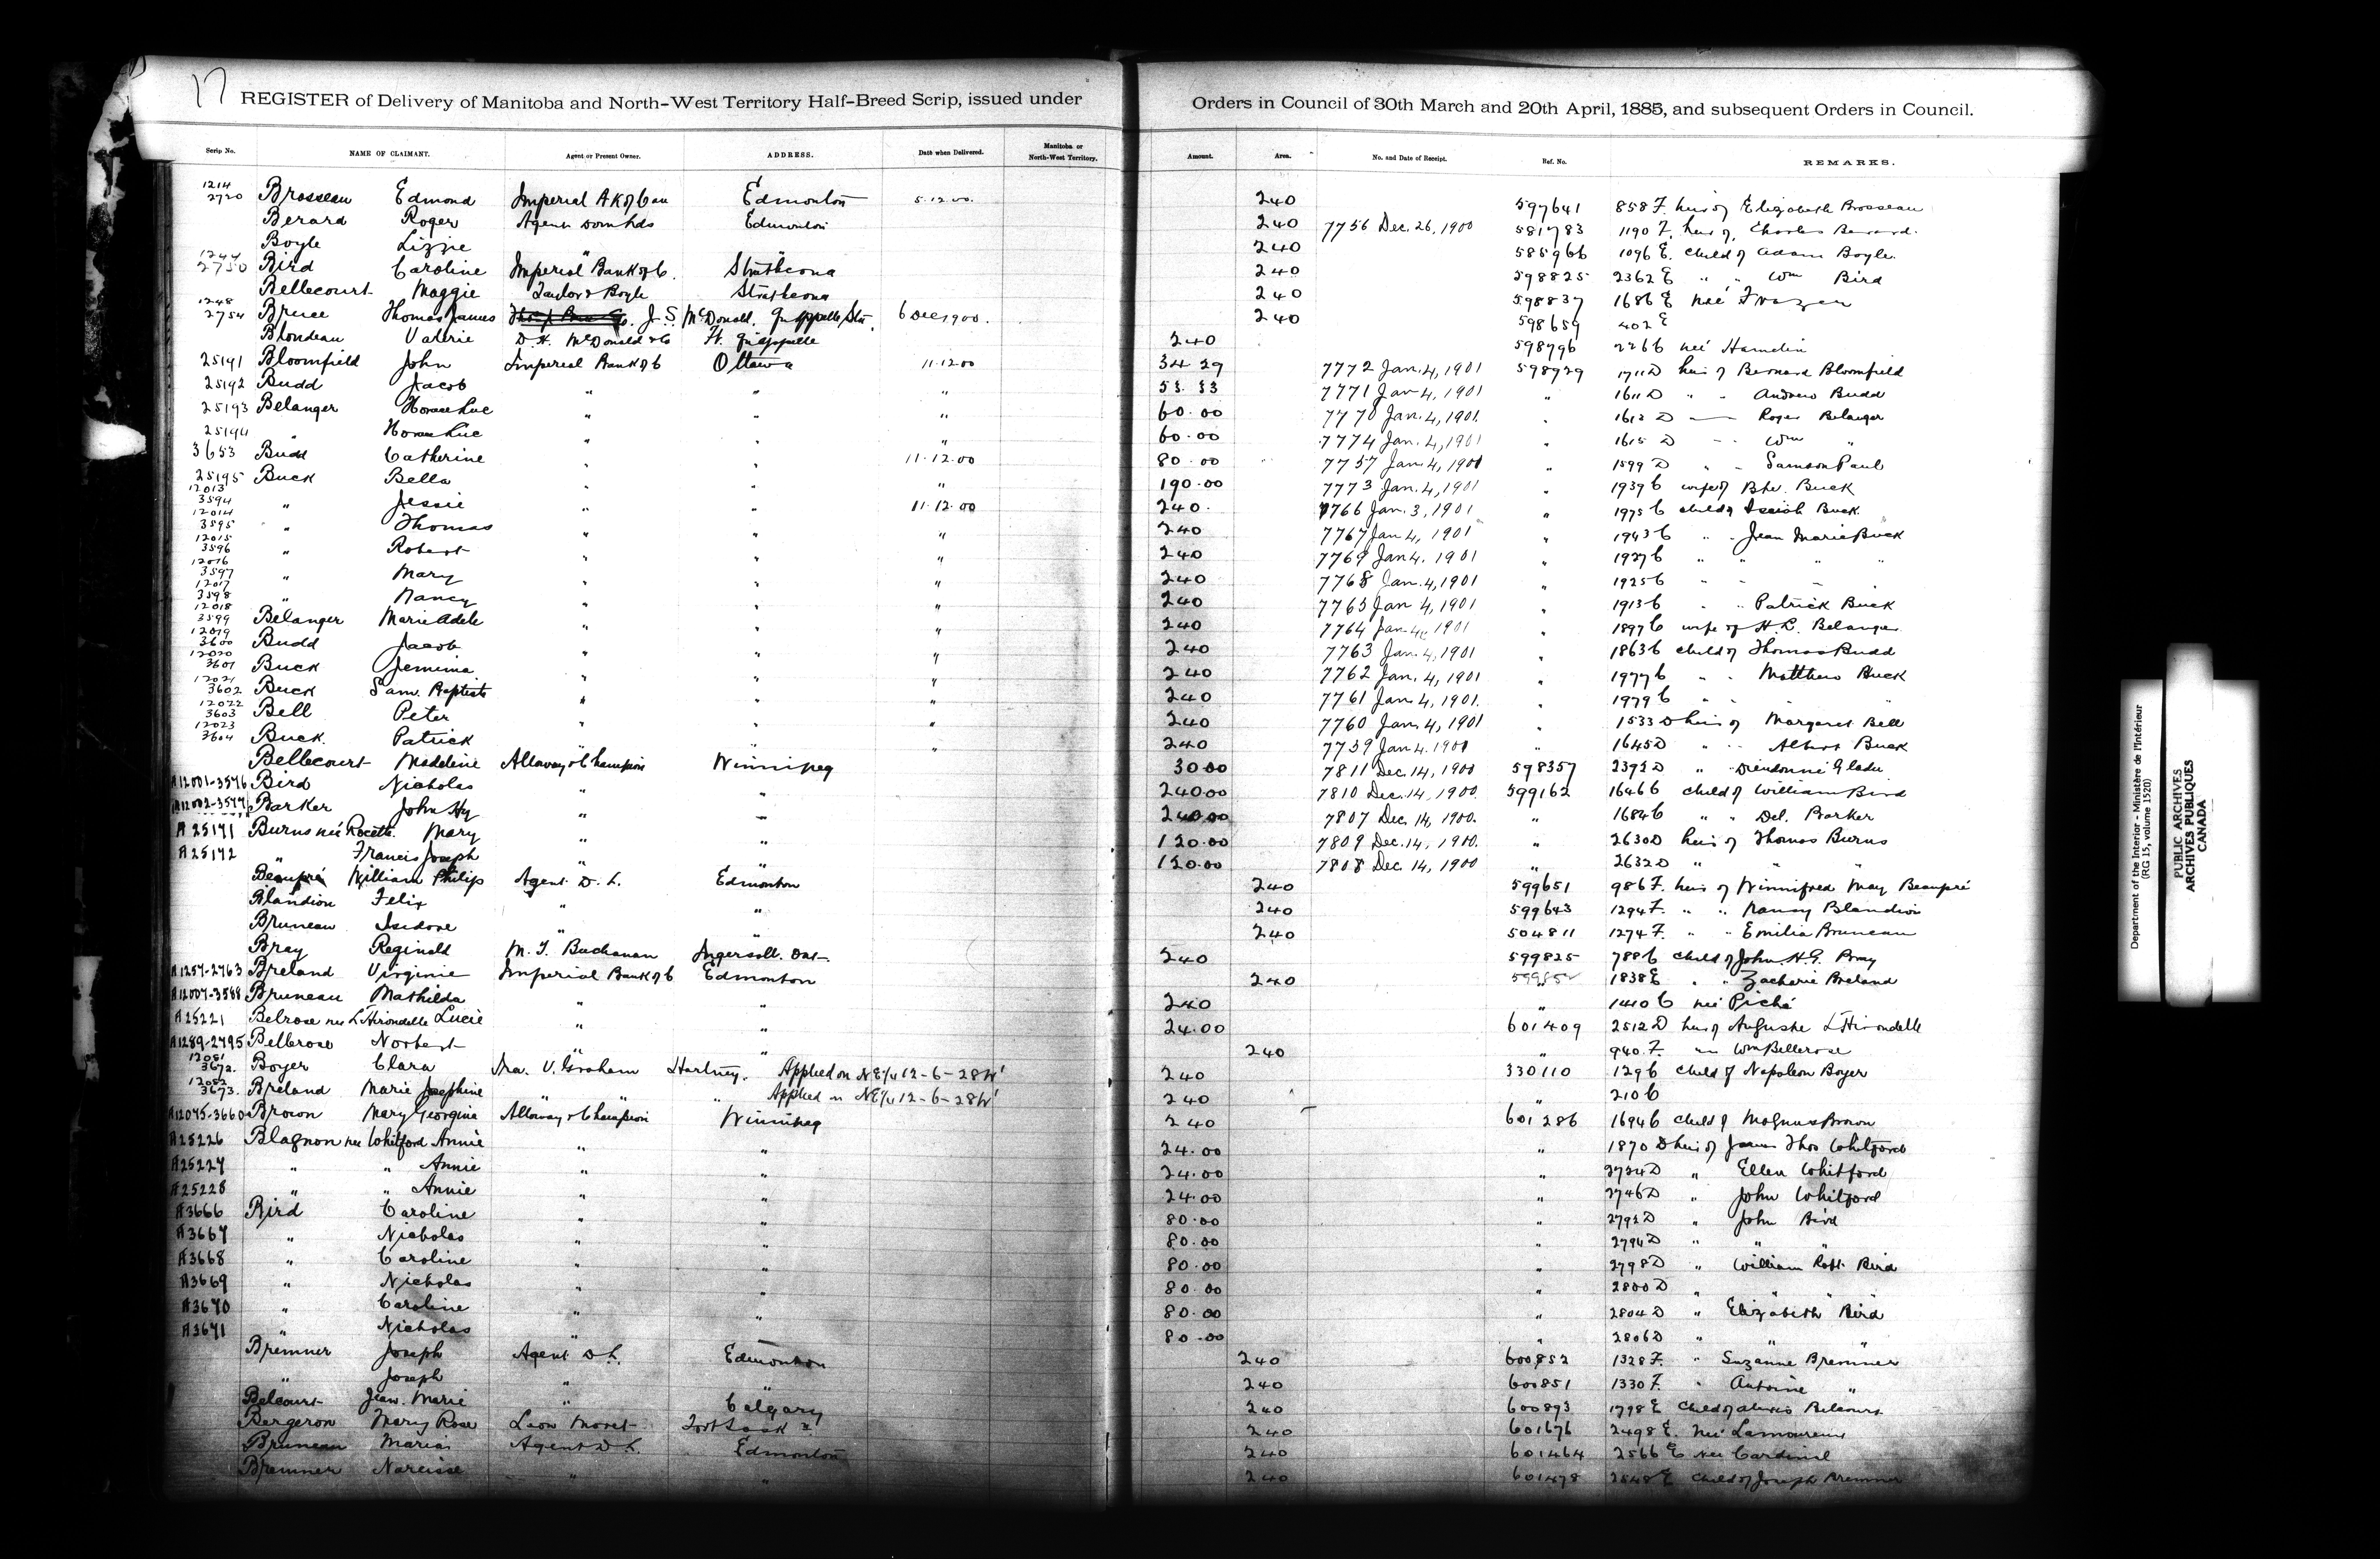 17
REGISTER of Delivery of Manitoba and North-West Territory Half-Breed Scrip, issued under Orders in Council of 30th March and 20th April, 1885, and subsequent Orders in Council.
Scrip No. NAME OF CLAIMANT. Agent or Present Owner. ADDRESS. Date when Delivered. Manitoba or North-West Territory. Amount. Area. No. and Date of Receipt. Ref. No. REMARKS.
1214 2720 Brosseau Edmond Imperial Bk of Can Edmonton 5.12.00. 240 597641 858 F. heir of Elizabeth Brosseau
Berard Roger Agent Dom lds Edmonton 240 7756 Dec. 26, 1900 581783 1190 F. heir of Charles Berard.
Boyle Lizzie " " 240 585966 1096 E. child of Adam Boyle.
1244 2750 Bird Caroline Imperial Bank of C. Strathcona 240 598825 2362 E " " Wm Bird
Bellecourt Maggie Taylor & Boyle Strathcona 240 598837 1686 E née Frazer
1248 2754 Bruce Thomas James J. S. McDonald. Qu'appelle Stn. 6 Dec 1900. 240 598659 402 E
Blondeau Valerie D. H. McDonald & Co Ft. Qu'appelle 240 598796 2266 née Hamelin
25191 Bloomfield John Imperial Bank of C Ottawa 11.12.00 34 29 7772 Jan. 4, 1901 598929 1711 D heir of Bernard Bloomfield
25192 Budd Jacob " " " 53.33 7771 Jan 4, 1901 " 1611 D " " Andrew Budd
25193 Belanger Horace Luc " " " 60.00 7770 Jan. 4, 1901. " 1613 D Roger Belanger
25194 " Horace Luc " " " 60.00 7774 Jan. 4, 1901 " 1615 D " " Wm "
3653 Budd Catherine " " 11.12.00 80.00 7757 Jan. 4, 1901 " 1599 D " " Samson Paul
25195 Buck Bella " " " 190.00 7773 Jan. 4, 1901 " 1939 C wife of Bte. Buck
12013 3594 " Jessie " " 11.12.00 240. 7766 Jan. 3, 1901 " 1975 C child of Isaiah Buck.
12014 3595 " Thomas " " " 240 7767 Jan 4, 1901 " 1943 C " " Jean Marie Buck
12015 3596 " Robert " " " 240 7769 Jan 4. 1901 " 1927 C " " "
12016 3597 " Mary " " " 240 7768 Jan. 4, 1901 " 1925 C " "
12017 3598 " Nancy " " " 240 7765 Jan 4, 1901 " 1913 C " " Patrick Buck
12018 3599 Belanger Marie Adele " " " 240 7764 Jan 4, 1901 " 1897 C wife of H. L. Belanger.
12019 3600 Budd Jacob " " " 240 7763 Jan. 4, 1901 " 1863 C child of Thomas Budd
12020 3601 Buck Jemima " " " 240 7762 Jan. 4, 1901 " 1977 C " " Matthew Buck
12021 3602 Buck Sam. Baptiste " " " 240 7761 Jan 4, 1901. " 1979 C " " "
12022 3603 Bell Peter " " " 240 7760 Jan. 4, 1901 " 1533 D heir of Margaret Bell
12023 3604 Buck. Patrick " " " 240 7759 Jan 4. 1901 " 1645 D " " Albert Buck
Bellecourt Madeleine Alloway & Champion Winnipeg 30 00 7811 Dec. 14, 1900 598357 2392 D " Dieudonné Gladu
A12001-3576 Bird Nicholas " " 240.00 7810 Dec. 14, 1900. 599162 1646 C child of William Bird
A12002-3577 Barker John Hy " " 240.00 7807 Dec. 14, 1900. " 1684 C " " Del. Barker
A25171 Burns née Rocette. Mary " " 120.00 7809 Dec. 14, 1900. " 2630 D heir of Thomas Burns
A25172 " Francis Joseph " " 120.00 7808 Dec 14, 1900 " 2632 D " " "
Beaupré William Philip Agent D. L. Edmonton 240 599651 986 F. heir of Winnifred May Beaupré
Blandion Felix " " 240 599643 1294 F. " " Nancy Blandion
Bruneau Isidore " " 240 504811 1274 F. " " Emilia Bruneau
Bray Reginald M. T. Buchanan Ingersoll. Ont. 240 599825 788 C child of John H. G. Bray
A1257-2763 Breland Virginie Imperial Bank of C Edmonton 240 1838 E " " Zacharie Breland
A12007-3588 Bruneau Mathilda " " 240 " 1410 C née Piché
A25221 Belrose née L'Hirondelle Lucie " " 24.00 601409 2512 D heir of Auguste L'Hirondelle
A1289-2795 Bellerose Norbert " " 240 " 940 F. " Wm Bellerose
12051 3672. Boyer Clara Ira. V. Graham Hartney. Applied on NE/4 12-6-28 W' 240 330110 129 C child of Napoleon Boyer
12052 3673. Breland Marie Josephine " " Applied on NE/4 12-6-28 W' 240 " 210 C
A12045-3660 Brown Mary Georgina Alloway & Champion Winnipeg 240 601286 1694 C child of Magnus Brown
A25226 Blagnon née Whitford Annie " " 24.00 " 1870 D heir of James Thos Whitford
A25227 " " Annie " " 24.00 " 2724 D " Ellen Whitford
A25228 " " Annie " " 24.00 " 2746 D " John Whitford
A3666 Bird Caroline " " 80.00 " 2792 D " John Bird
A3667 " Nicholas " " 80.00 " 2794 D " "
A3668 " Caroline " " 80.00 " 2798 D " William Robt. Bird
A3669 " Nicholas " " 80.00 " 2800 D " " "
A3670 " Caroline " " 80.00 " 2804 D " Elizabeth Bird
A3671 " Nicholas " " 80.00 " 2806 D " " "
Bremner Joseph Agent D L. Edmonton 240 600852 1328 F. " Suzanne Bremner
" Joseph " " 240 600851 1330 F. " Antoine "
Belcourt Jean. Marie " Calgary 240 600893 1798 E child of Alexis Belcourt
Bergeron Mary Rose Leon Moret 240 601676 2498 E. née Lamoureux
Bruneau Maria Agent D L. Edmonton 240 601464 2566 E née Cardinal
Bremner Narcisse " " 240 601478 2548 E child of Joseph Bremner
Department of the Interior - Ministère de l'Intérieur
(RG 15, volume 1520)
PUBLIC ARCHIVES
ARCHIVES PUBLIQUES
CANADA